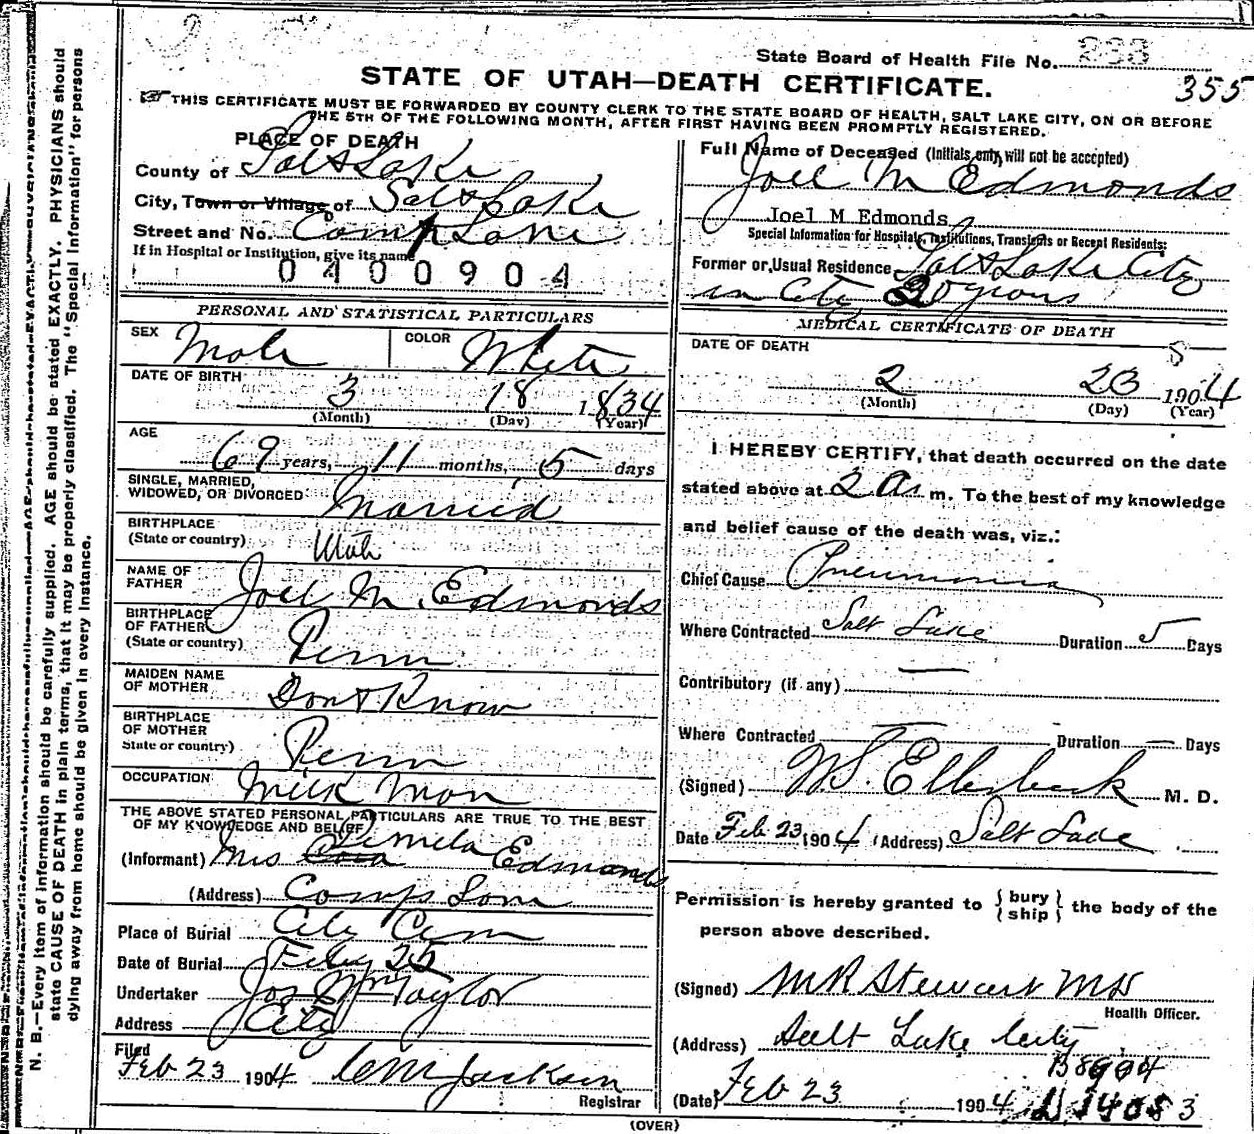 State Board of Health File No. 233
355
STATE OF UTAH—DEATH CERTIFICATE.
THIS CERTIFICATE MUST BE FORWARDED BY COUNTY CLERK TO THE STATE BOARD OF HEALTH, SALT LAKE CITY, ON OR BEFORE
THE 5TH OF THE FOLLOWING MONTH, AFTER FIRST HAVING BEEN PROMPTLY REGISTERED.
PLACE OF DEATH
County of Salt Lake
City, Town or Village of Salt Lake
Street and No. Camp Lane
If in Hospital or Institution, give its name
0400904
PERSONAL AND STATISTICAL PARTICULARS
SEX Male COLOR White
DATE OF BIRTH
3 18 1834
(Month) (Day) (Year)
AGE
69 years, 11 months, 5 days
SINGLE, MARRIED,
WIDOWED, OR DIVORCED Married
BIRTHPLACE
(State or country) Utah
NAME OF
FATHER Joel M. Edmonds
BIRTHPLACE
OF FATHER
(State or country) Penn
MAIDEN NAME
OF MOTHER Dont Know
BIRTHPLACE
OF MOTHER
State or country) Penn
OCCUPATION Milk Man
THE ABOVE STATED PERSONAL PARTICULARS ARE TRUE TO THE BEST
OF MY KNOWLEDGE AND BELIEF
(Informant) Mrs Edmonds
(Address) Camps Lane
Place of Burial City Cem
Date of Burial Feby 25
Undertaker Jos Wm Taylor
Address City
Filed
Feb 23 1904 CM Jackson
Registrar
Full Name of Deceased (Initials only will not be accepted)
Joel M Edmonds
Joel M Edmonds
Special Information for Hospitals, Institutions, Transients or Recent Residents:
Former or Usual Residence Salt Lake City
in City 20 years
MEDICAL CERTIFICATE OF DEATH
DATE OF DEATH
S
2 23 1904
(Month) (Day) (Year)
I HEREBY CERTIFY, that death occurred on the date
stated above at 2 a. m. To the best of my knowledge
and belief cause of the death was, viz.:
Chief Cause Pneumonia
Where Contracted Salt Lake Duration 5 Days
Contributory (if any) —
Where Contracted — Duration — Days
(Signed) W.S. Ellerbeck M. D.
Date Feb 23 1904 (Address) Salt Lake
Permission is hereby granted to { bury ship } the body of the
person above described.
(Signed) M R Stewart MD
Health Officer.
(Address) Salt Lake City
(Date) Feb 23 1904
(OVER)
N. B.—Every item of information should be carefully supplied. AGE should be stated EXACTLY. PHYSICIANS should
state CAUSE OF DEATH in plain terms, that it may be properly classified. The "Special Information" for persons
dying away from home should be given in every instance.